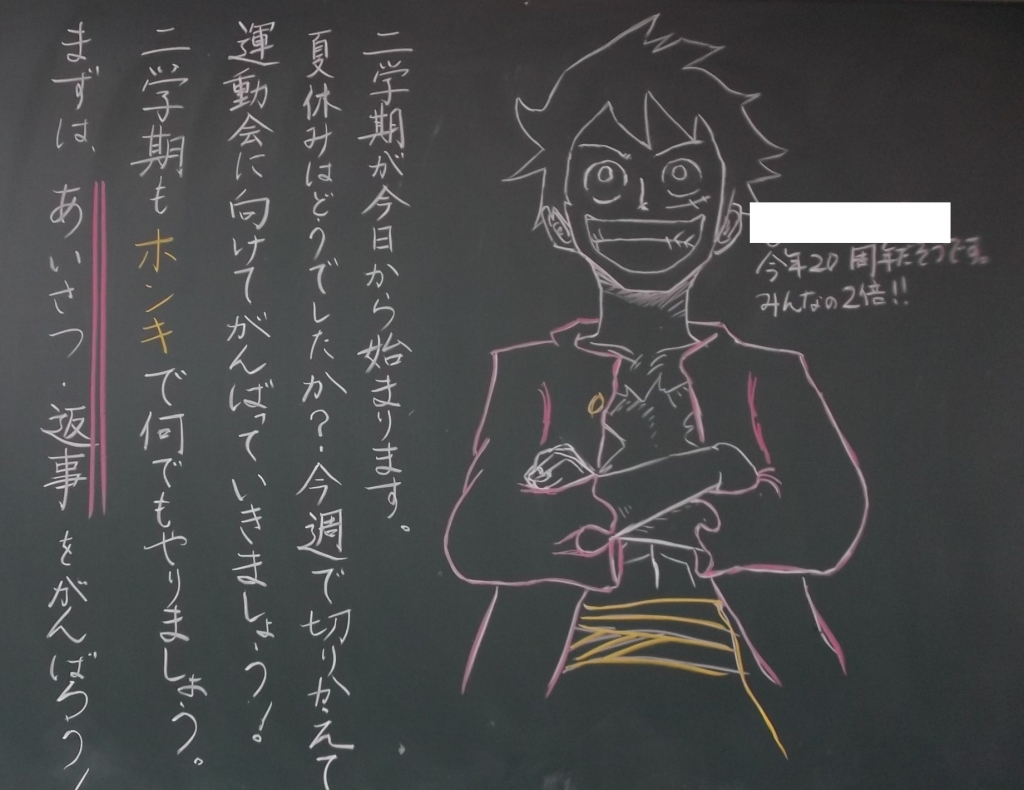 二学期が今日から始まります。
夏休みはどうでしたか?今週で切りかえて
運動会に向けてがんばっていきましょう!
二学期もホンキで何でもやりましょう。
まずは、あいさつ・返事をがんばろう!
今年20周年だそうです。
みんなの2倍!!